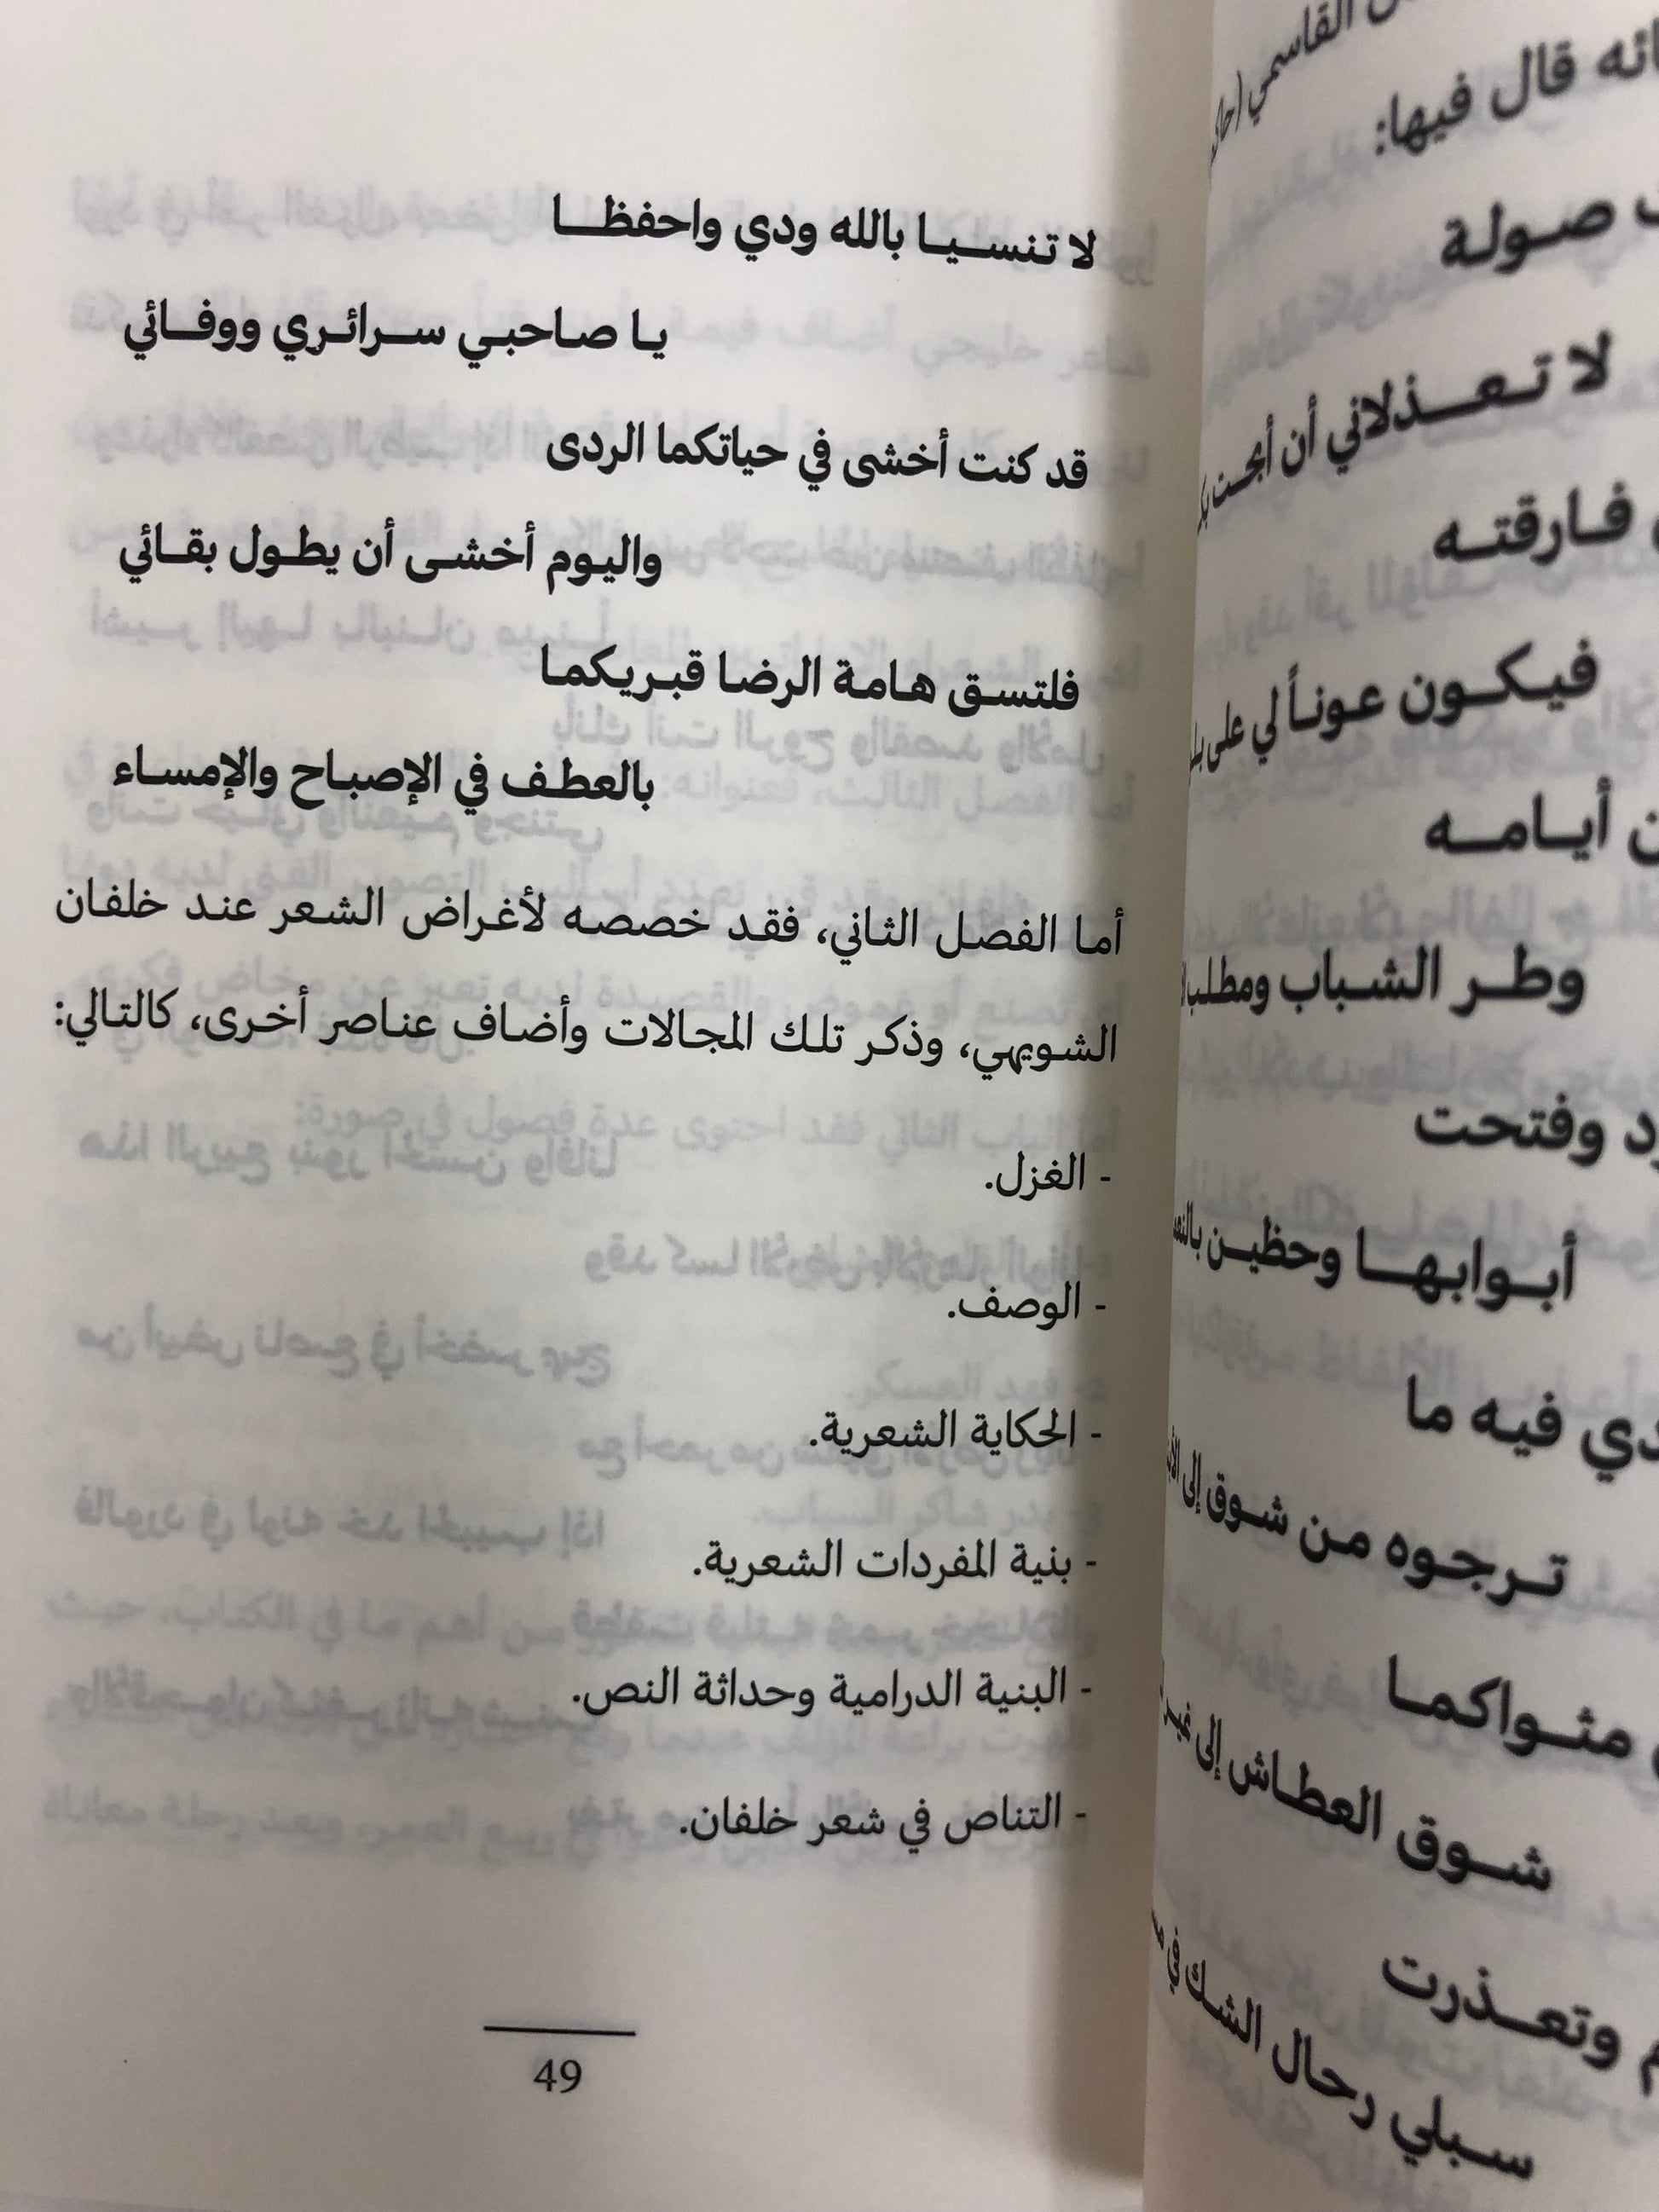 القاسمي
قال فيها:
صولة
لا تعذلاني أن أبحت
فارقته
فيكون عوناً لي على
أيامه
وطر الشباب ومطلب
وفتحت
أبوابها وحظين
فيه ما
ترجوه من شوق إلى
مثواكما
شوق العطاش إلى
وتعذرت
سبلي رحال الشك في
لا تنسيا بالله ودي واحفظا
يا صاحبي سرائري ووفائي
قد كنت أخشى في حياتكما الردى
واليوم أخشى أن يطول بقائي
فلتسق هامة الرضا قبريكما
بالعطف في الإصباح والإمساء
أما الفصل الثاني، فقد خصصه لأغراض الشعر عند خلفان
الشويهي، وذكر تلك المجالات وأضاف عناصر أخرى، كالتالي:
- الغزل.
- الوصف.
- الحكاية الشعرية.
- بنية المفردات الشعرية.
- البنية الدرامية وحداثة النص.
- التناص في شعر خلفان.
49